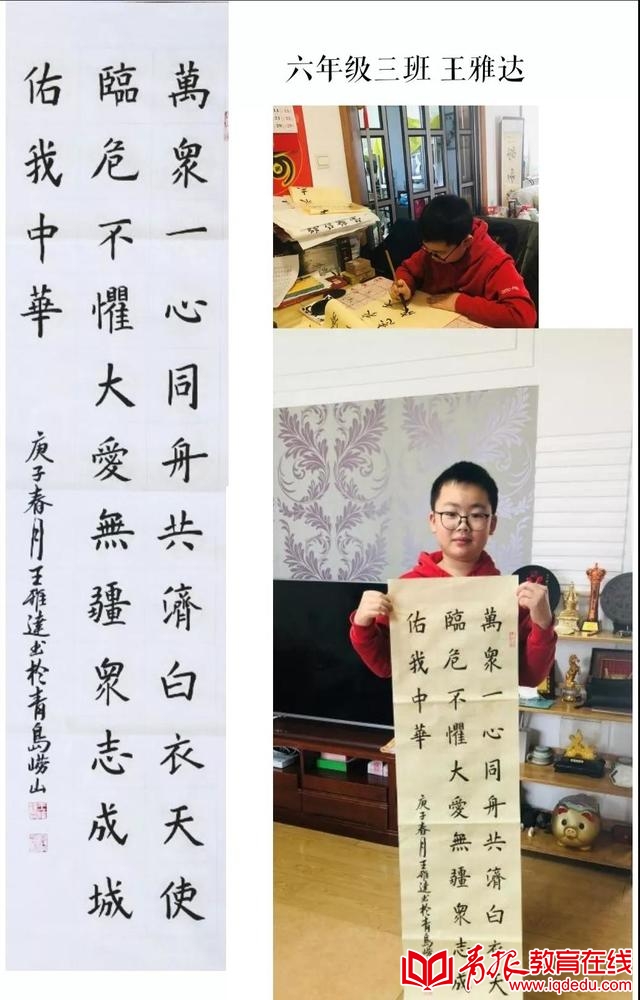 六年级三班 王雅达
萬眾一心同舟共濟白衣天使
臨危不懼大愛無疆眾志成城
佑我中華
庚子春月王雅達书於青島嶗山
萬眾一心同舟共濟白衣天
臨危不懼大愛無疆眾志成
佑我中華
庚子春月王雅達书於青島嶗
青报教育在线
www.iqdedu.com